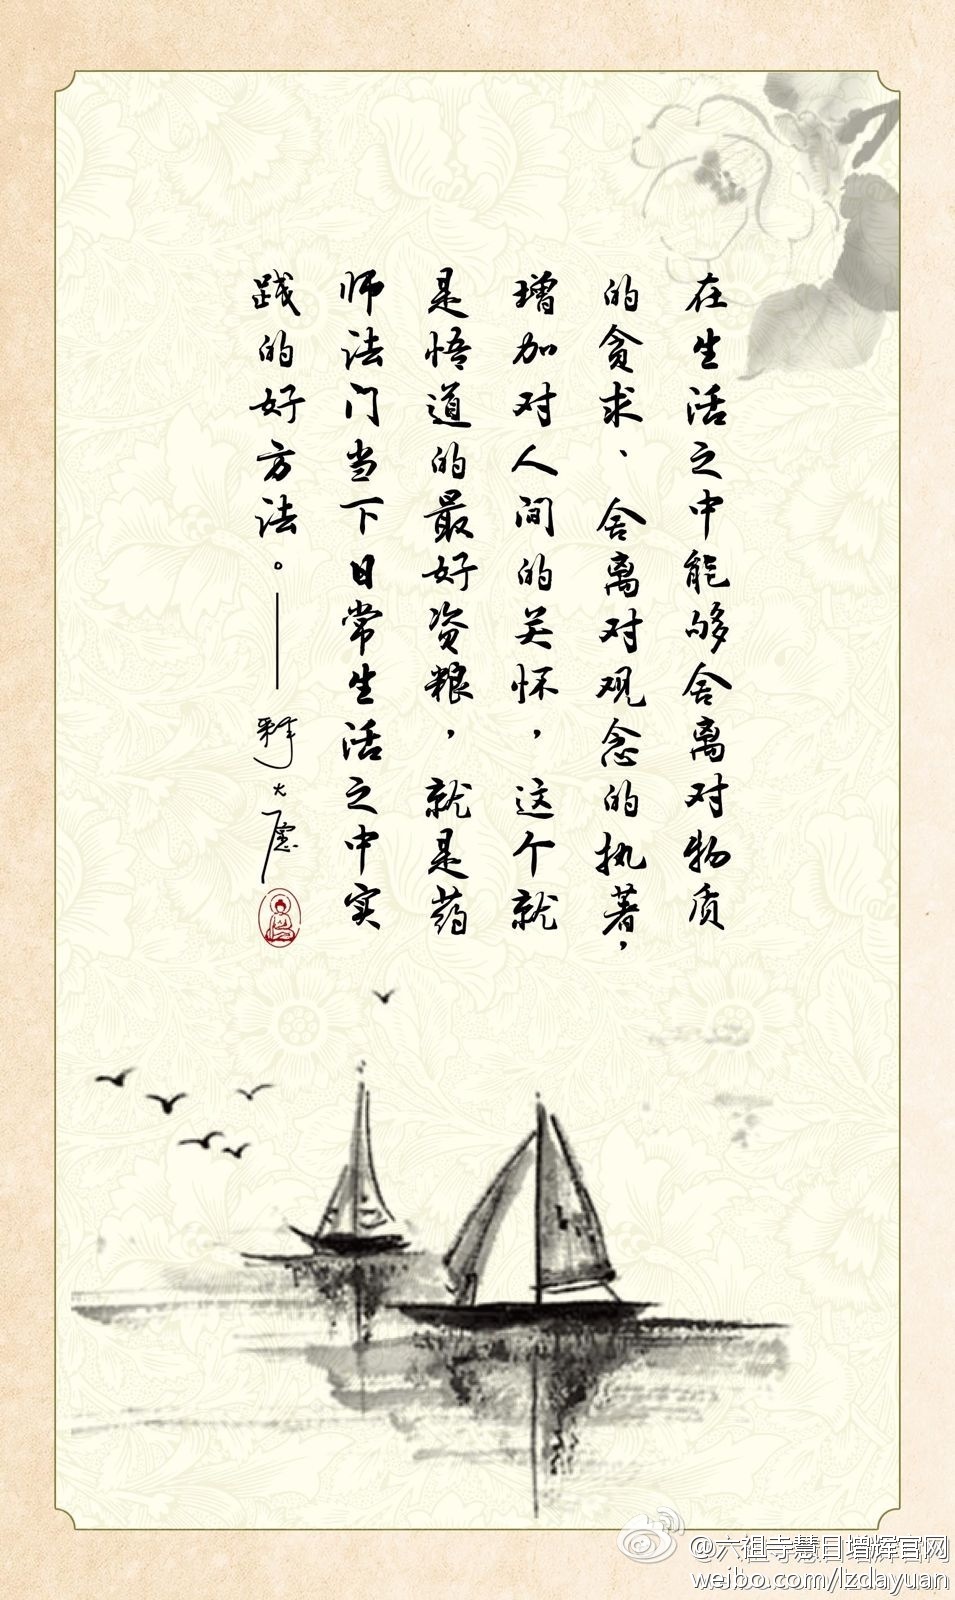 在生活之中能够舍离对物质
的贪求、舍离对观念的执著，
增加对人间的关怀，这个就
是悟道的最好资粮，就是药
师法门当下日常生活之中实
践的好方法。——
释大愿
@六祖寺慧目增辉官网
weibo.com/lzdayuan